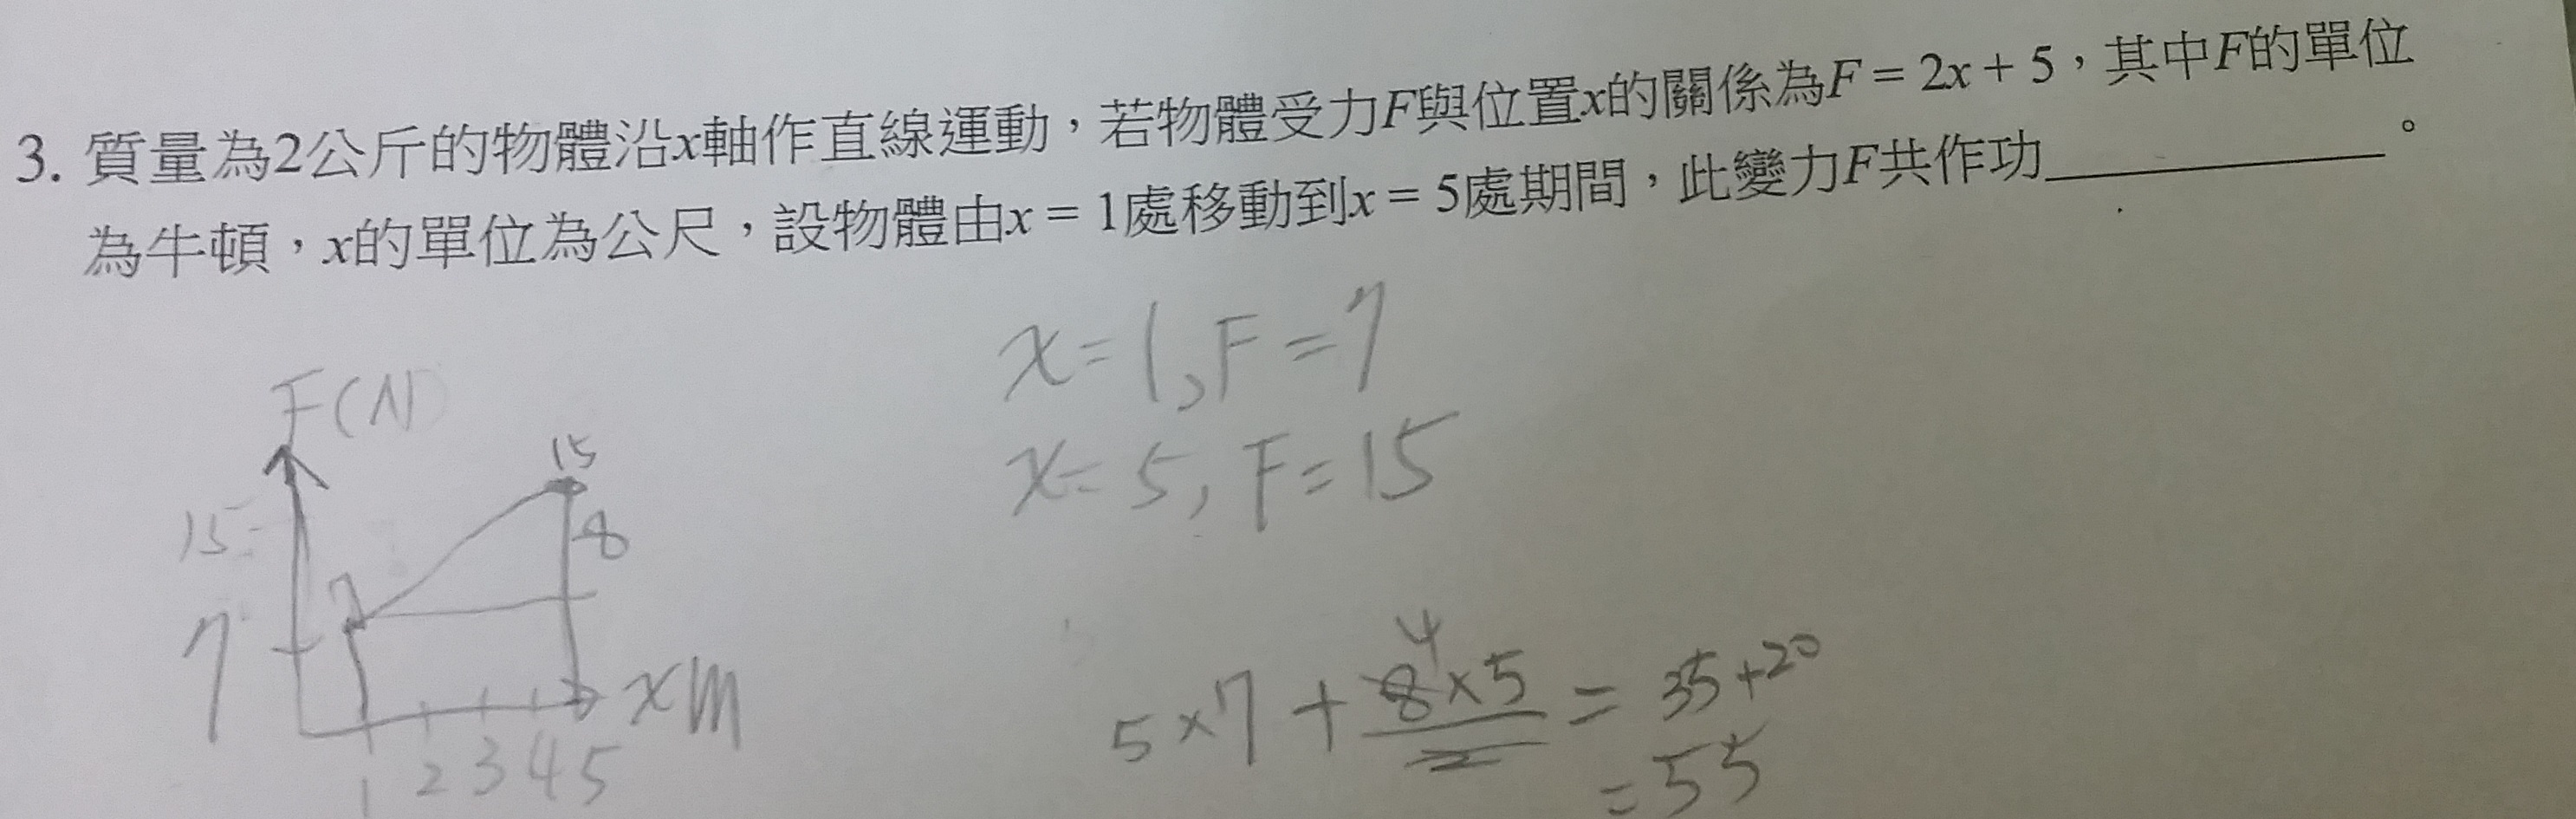 3. 質量為2公斤的物體沿x軸作直線運動，若物體受力F與位置x的關係為F = 2x + 5，其中F的單位
為牛頓，x的單位為公尺，設物體由x = 1處移動到x = 5處期間，此變力F共作功＿＿＿＿＿＿。
x=1, F=7
x=5, F=15
F(N)
15
15
8
7
7
x m
1 2 3 4 5
4
5×7+8×5/2=35+20
=55